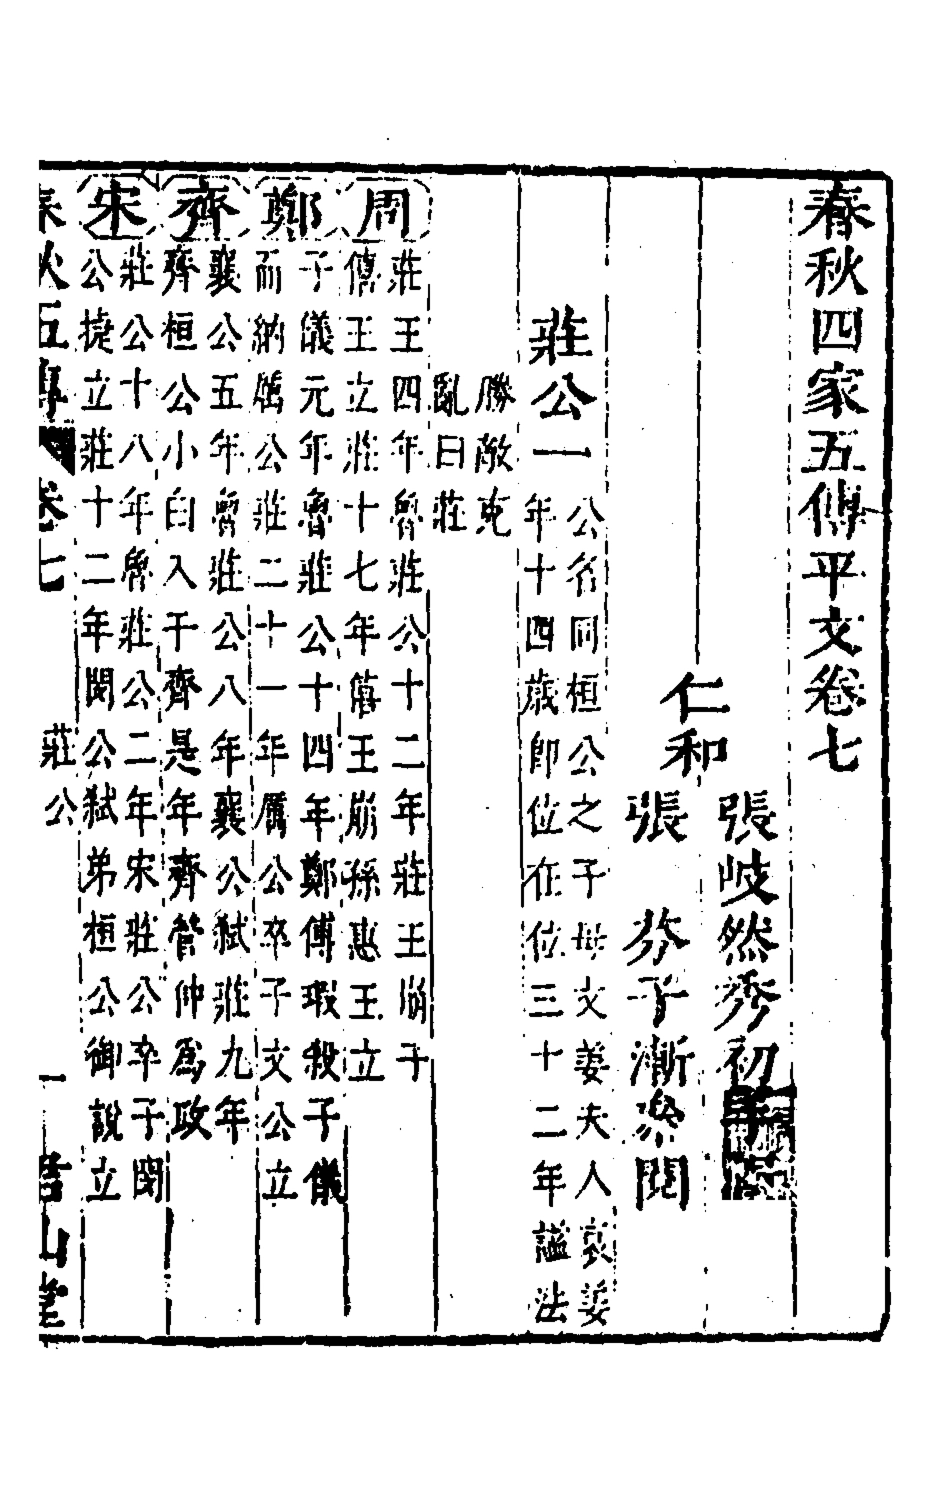 春秋四家五傳平文卷七
仁和
張岐然秀初
張 芬子漸叅閱
莊公一
公名同桓公之子母文姜夫人哀姜
年十四歲即位在位三十二年謚法
勝敵克
亂曰莊
周
莊王四年魯莊公十二年莊王崩子
僖王立莊十七年僖王崩孫惠王立
鄭
子儀元年魯莊公十四年鄭傅瑕殺子儀
而納厲公莊二十一年厲公卒子文公立
齊
襄公五年魯莊公八年襄公弑莊九年
齊桓公小白入于齊是年齊管仲爲政
宋
莊公十八年魯莊公二年宋莊公卒子閔
公捷立莊十二年閔公弑弟桓公御說立
春秋五傳 卷七 莊公 一 君山堂